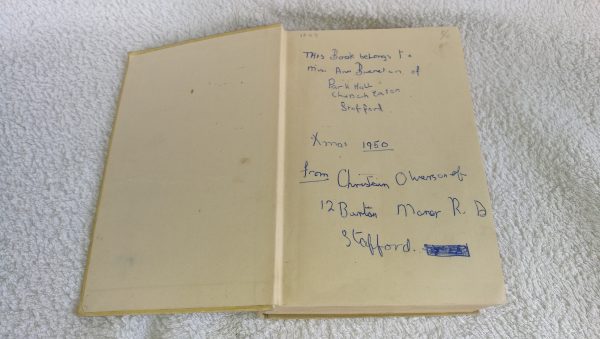 THIS Book belongs to
Miss Ann Brereton of
Park Hall
Church Eaton
Stafford
Xmas 1950
from Christian Owerson of
12 Burton Manor R D
Stafford.